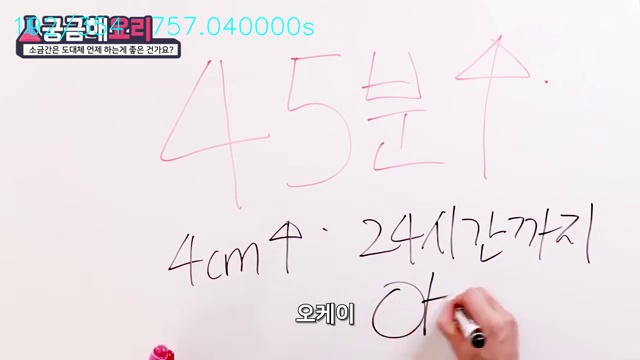 757.040000s
궁금해요리
소금간은 도대체 언제 하는게 좋은 건가요?
45분↑.
4cm↑. 24시간까지
아
오케이